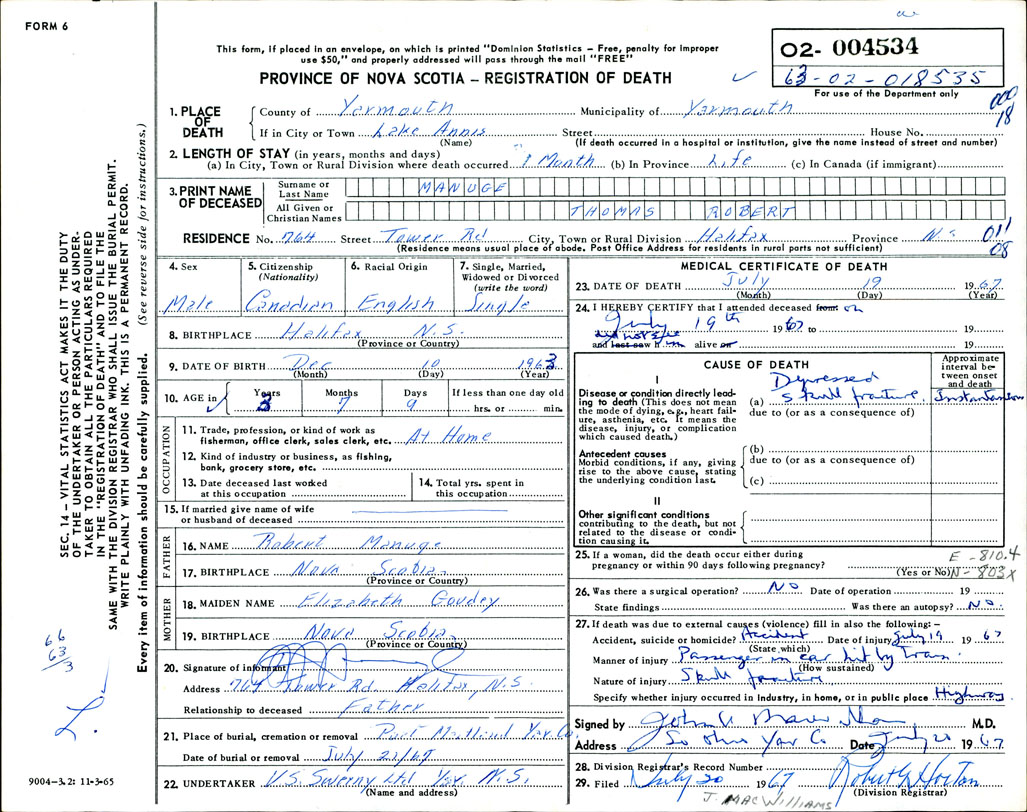 FORM 6
This form, if placed in an envelope, on which is printed "Dominion Statistics – Free, penalty for improper
use $50," and properly addressed will pass through the mail "FREE"
PROVINCE OF NOVA SCOTIA – REGISTRATION OF DEATH
02- 004534
63-02-018535
For use of the Department only
000
18
1. PLACE OF DEATH
County of Yarmouth Municipality of Yarmouth
If in City or Town Lake Annis Street House No.
(Name) (If death occurred in a hospital or institution, give the name instead of street and number)
2. LENGTH OF STAY (in years, months and days)
(a) In City, Town or Rural Division where death occurred 1 Month (b) In Province Life (c) In Canada (if immigrant)
3. PRINT NAME OF DECEASED
Surname or Last Name MANUGE
All Given or Christian Names THOMAS ROBERT
RESIDENCE No. 764 Street Tower Rd City, Town or Rural Division Halifax Province N.S.
(Residence means usual place of abode. Post Office Address for residents in rural parts not sufficient)
011
08
4. Sex
Male
5. Citizenship (Nationality)
Canadian
6. Racial Origin
English
7. Single, Married, Widowed or Divorced (write the word)
Single
8. BIRTHPLACE Halifax N.S.
(Province or Country)
9. DATE OF BIRTH Dec 10 1963
(Month) (Day) (Year)
10. AGE in Years 3 Months 7 Days 9 If less than one day old
hrs. or min.
OCCUPATION
11. Trade, profession, or kind of work as
fisherman, office clerk, sales clerk, etc. At Home
12. Kind of industry or business, as fishing,
bank, grocery store, etc.
13. Date deceased last worked
at this occupation
14. Total yrs. spent in
this occupation
15. If married give name of wife
or husband of deceased
FATHER
16. NAME Robert Manuge
17. BIRTHPLACE Nova Scotia
(Province or Country)
MOTHER
18. MAIDEN NAME Elizabeth Goudey
19. BIRTHPLACE Nova Scotia
(Province or Country)
20. Signature of informant
Address 764 Tower Rd. Halifax, N.S.
Relationship to deceased Father
21. Place of burial, cremation or removal Port Maitland Yar. Co.
Date of burial or removal July 21/67
22. UNDERTAKER V.S. Sweeny Ltd Yar. N.S.
(Name and address)
MEDICAL CERTIFICATE OF DEATH
23. DATE OF DEATH July 19 1967
(Month) (Day) (Year)
24. I HEREBY CERTIFY that I attended deceased from on
July 19th 1967 to 19
and last saw h im alive on 19
did not see
CAUSE OF DEATH
Approximate interval between onset and death
I
Disease or condition directly leading to death (This does not mean
the mode of dying, e.g., heart failure, asthenia, etc. It means the
disease, injury, or complication
which caused death.)
(a) Depressed skull fracture
due to (or as a consequence of)
Antecedent causes
Morbid conditions, if any, giving
rise to the above cause, stating
the underlying condition last.
(b)
due to (or as a consequence of)
(c)
II
Other significant conditions
contributing to the death, but not
related to the disease or condition causing it.
25. If a woman, did the death occur either during
pregnancy or within 90 days following pregnancy?
(Yes or No)
E-810.4
N-803x
26. Was there a surgical operation? NO Date of operation 19
State findings Was there an autopsy? NO.
27. If death was due to external causes (violence) fill in also the following:–
Accident, suicide or homicide? Accident Date of injury July 19 1967
(State which)
Manner of injury Passenger in car hit by Train
(How sustained)
Nature of injury Skull fracture
Specify whether injury occurred in Industry, in home, or in public place Highway
Signed by M.D.
Address Yar Co Date July 20 1967
28. Division Registrar's Record Number
29. Filed July 20 1967 Robert G Horton
(Division Registrar)
J. MACWILLIAMS
SEC. 14 – VITAL STATISTICS ACT MAKES IT THE DUTY
OF THE UNDERTAKER OR PERSON ACTING AS UNDER-
TAKER TO OBTAIN ALL THE PARTICULARS REQUIRED
IN THE "REGISTRATION OF DEATH" AND TO FILE THE
SAME WITH THE DIVISION REGISTRAR WHO SHALL ISSUE THE BURIAL PERMIT.
WRITE PLAINLY WITH UNFADING INK. THIS IS A PERMANENT RECORD.
Every item of information should be carefully supplied. (See reverse side for instructions.)
66
63
3
9004-3.2: 11-3-65